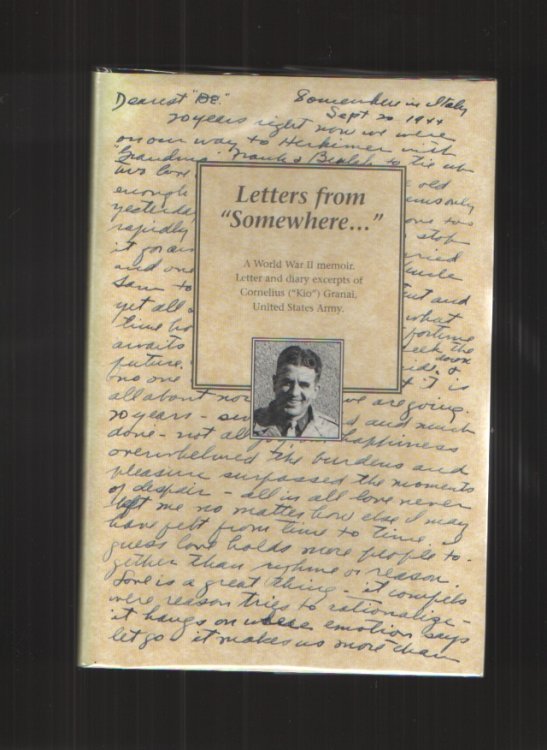 Dearest "DE." Somewhere in Italy
Sept 20 1944
20 years right now we were
on our way to Herkimer with
"Grandma" Frank & Beulah to tie up
two love old
enough
yesterday one two
rapidly stop
it
and one
Sam to and
yet all what
time fortune
awaits seek the
future. down
no one it is
all about now we are going.
20 years - and much
done - not all happiness
overwhelmed the burdens and
pleasure surpassed the moments
of despair - all in all love never
left me no matter how else I may
have felt from time to time. I
guess love holds more people to-
gether than rythme or reason.
Love is a great thing - it compels
were reason tries to rationalize -
it hangs on emotion says
let go it makes us more than
Letters from
"Somewhere..."
A World War II memoir.
Letter and diary excerpts of
Cornelius ("Kio") Granai,
United States Army.